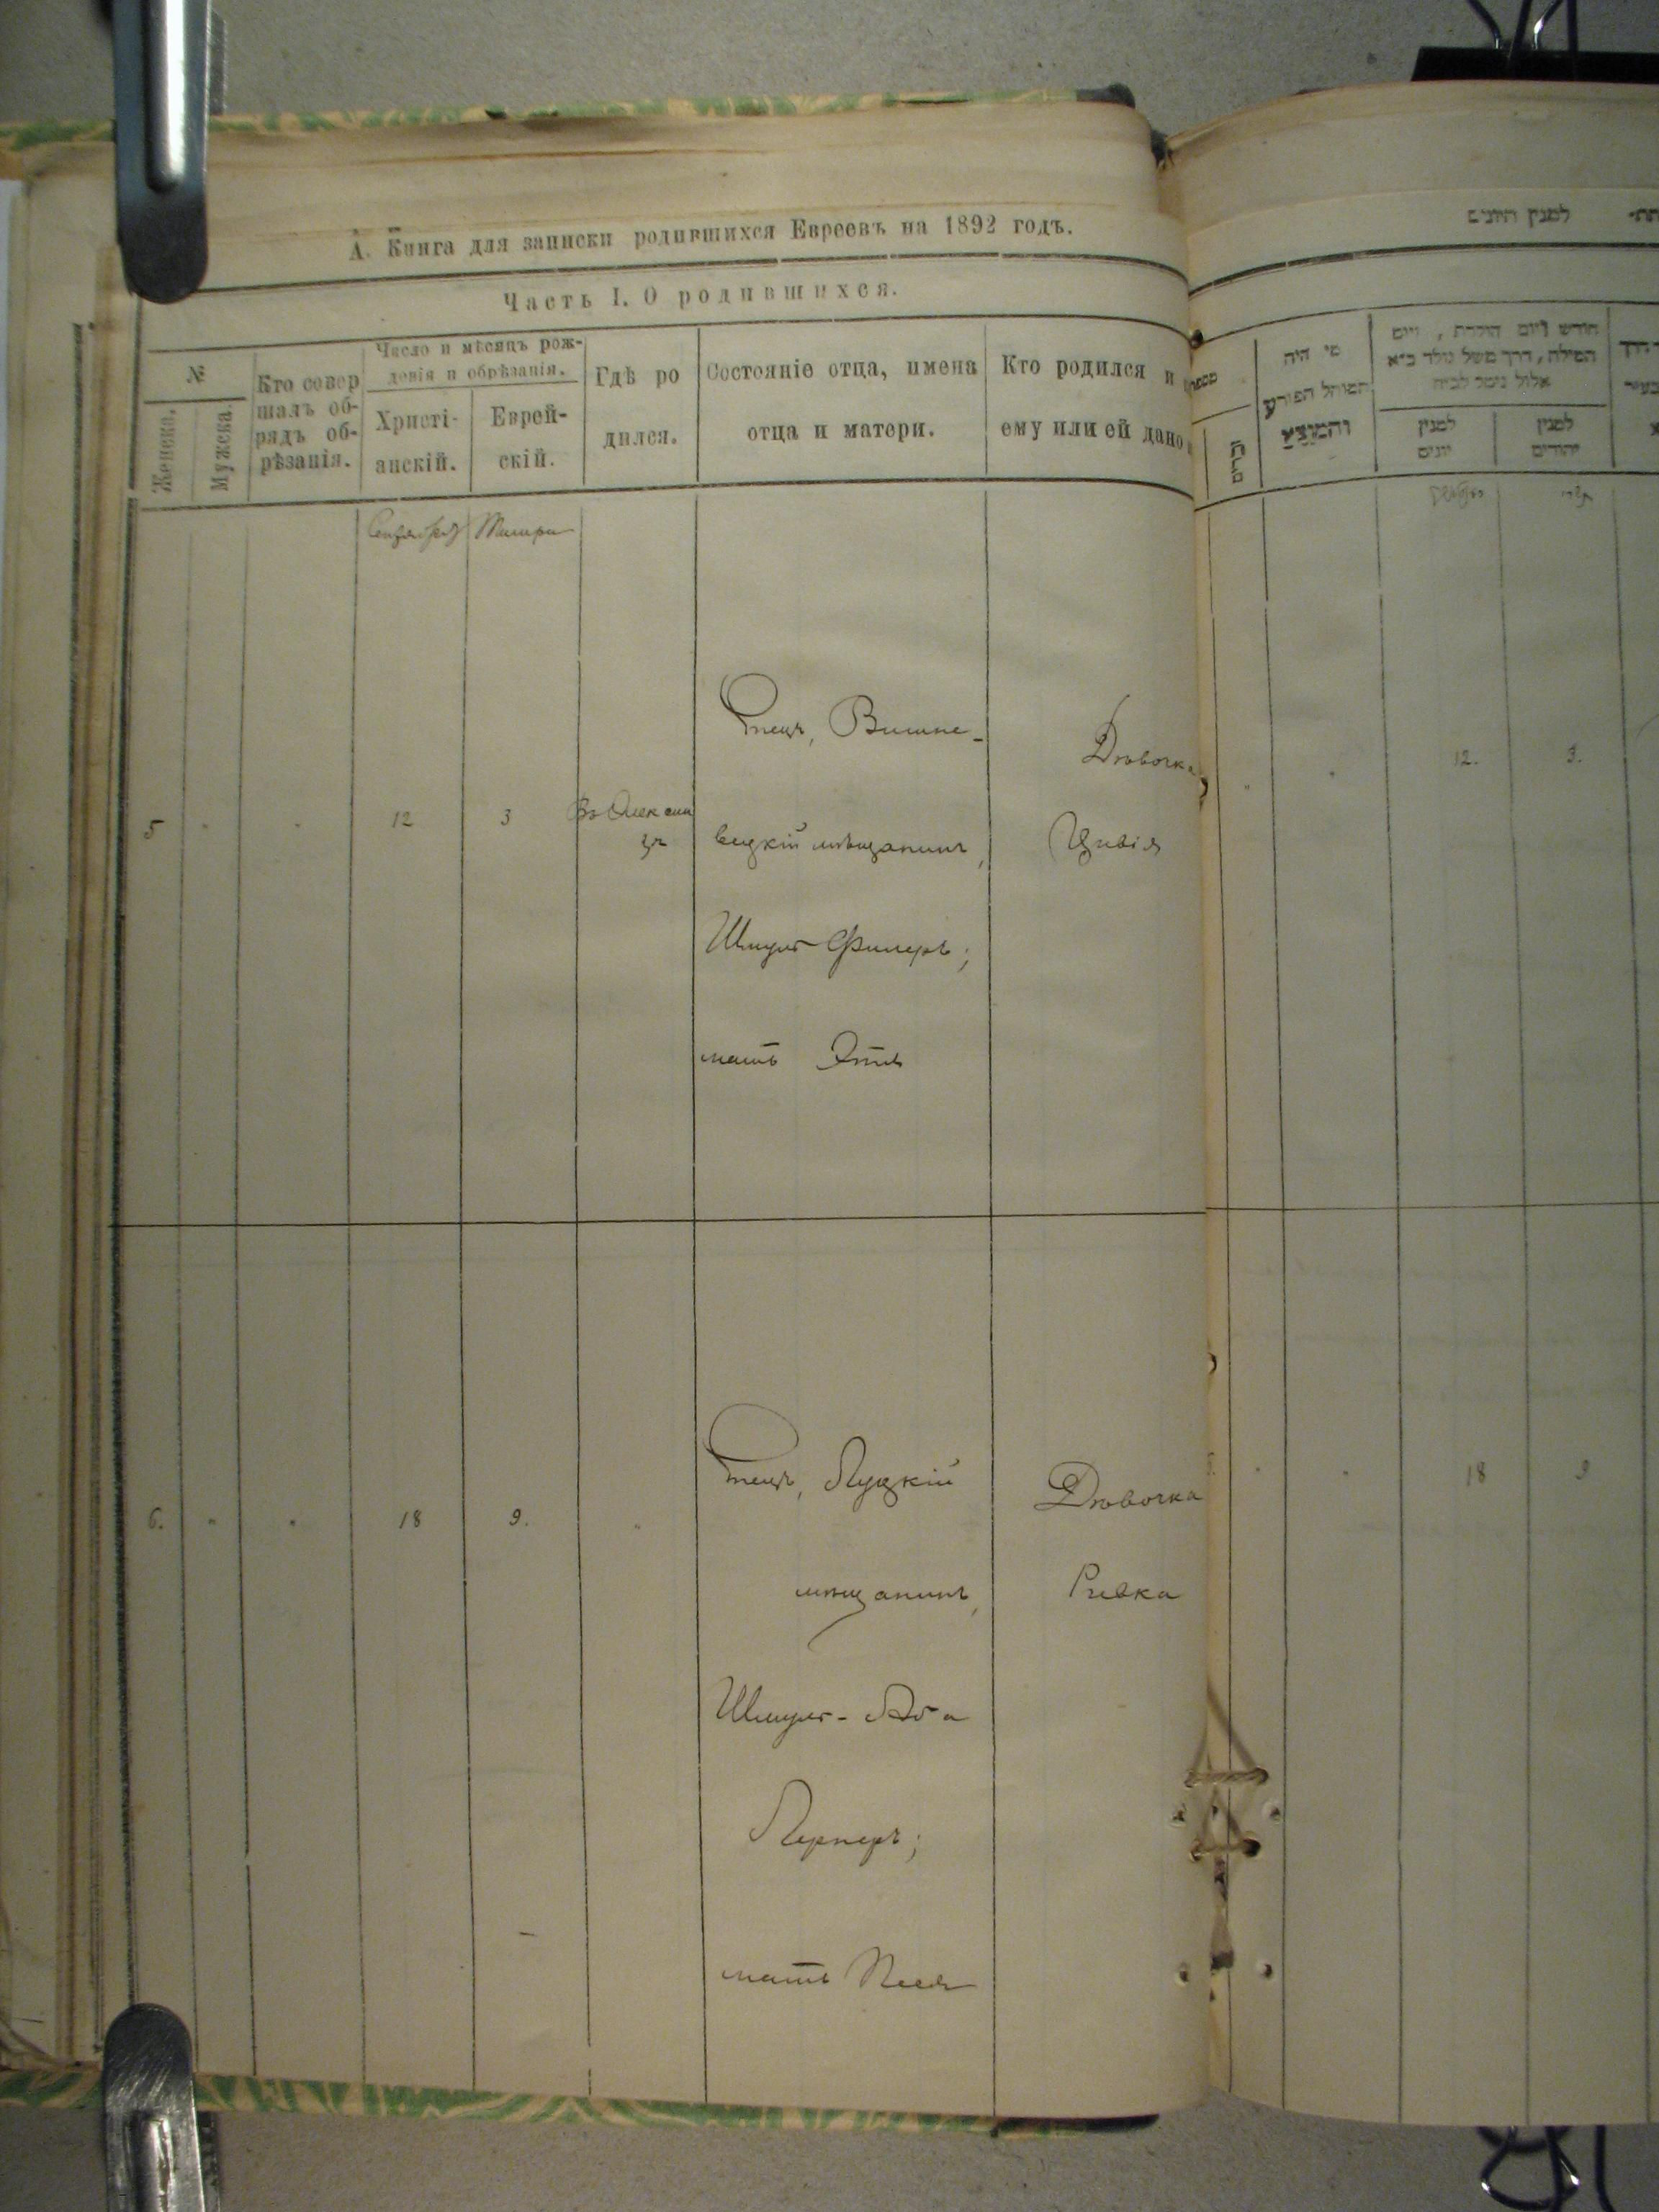 А. Книга для записки родившихся Евреевъ на 1892 годъ.
Часть I. О родившихся.
№
Женска.
Мужска.
Кто совер
шалъ об-
рядъ об-
рѣзанія.
Число и мѣсяцъ рож-
денія и обрѣзанія.
Христі-
анскій.
Еврей-
скій.
Гдѣ ро
дился.
Состояніе отца, имена
отца и матери.
Кто родился и
ему или ей дано
Сентября Тишри
5 12 3
Отецъ, Вишне-
вецкій мѣщанинъ,
Шмуль Фишеръ;
мать Этль
Дѣвочка
Цивія
6. 18 9.
Отецъ, Луцкій
мѣщанинъ,
Шмуль-Аба
Лернеръ;
мать Песя
Дѣвочка
Ривка
למנין היונים
מי היה
המוהל הפורע
והמוצץ
חודש ויום הולדת, ויום
המילה, דרך משל נולד כ״א
אלול נימל לב״ח
למנין
יונים
למנין
יהודים
תשרי
12. 3.
18 9